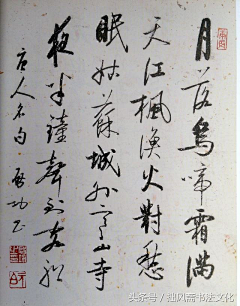 月落烏啼霜滿
天江楓漁火對愁
眠姑蘇城外寒山寺
夜半鐘聲到客船
唐人名句 启功
头条号 / 拙风斋书法文化